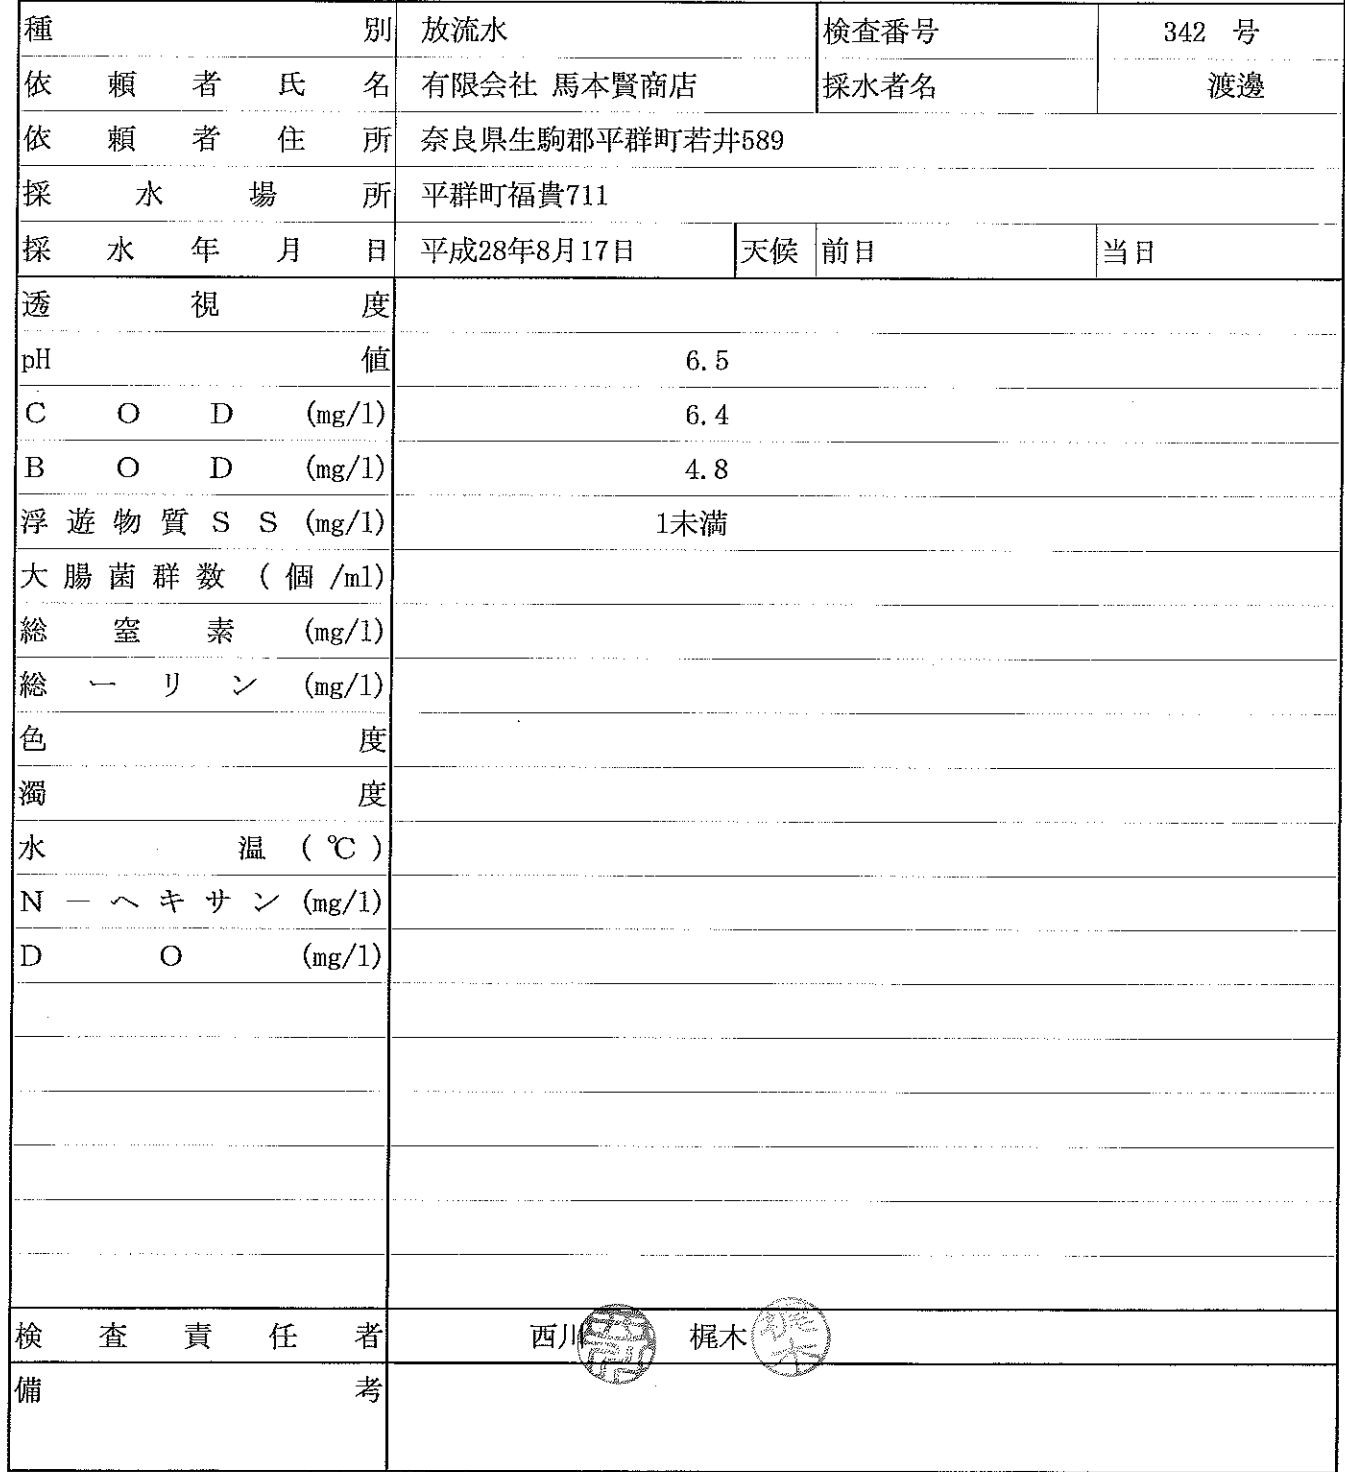 種別 放流水 検査番号 342 号
依頼者氏名 有限会社 馬本賢商店 採水者名 渡邊
依頼者住所 奈良県生駒郡平群町若井589
採水場所 平群町福貴711
採水年月日 平成28年8月17日 天候 前日 当日
透視度
pH値 6.5
COD (mg/l) 6.4
BOD (mg/l) 4.8
浮遊物質SS (mg/l) 1未満
大腸菌群数 (個/ml)
総窒素 (mg/l)
総ーリン (mg/l)
色度
濁度
水温 (℃)
N－ヘキサン (mg/l)
DO (mg/l)
検査責任者 西川 梶木 梶木
備考